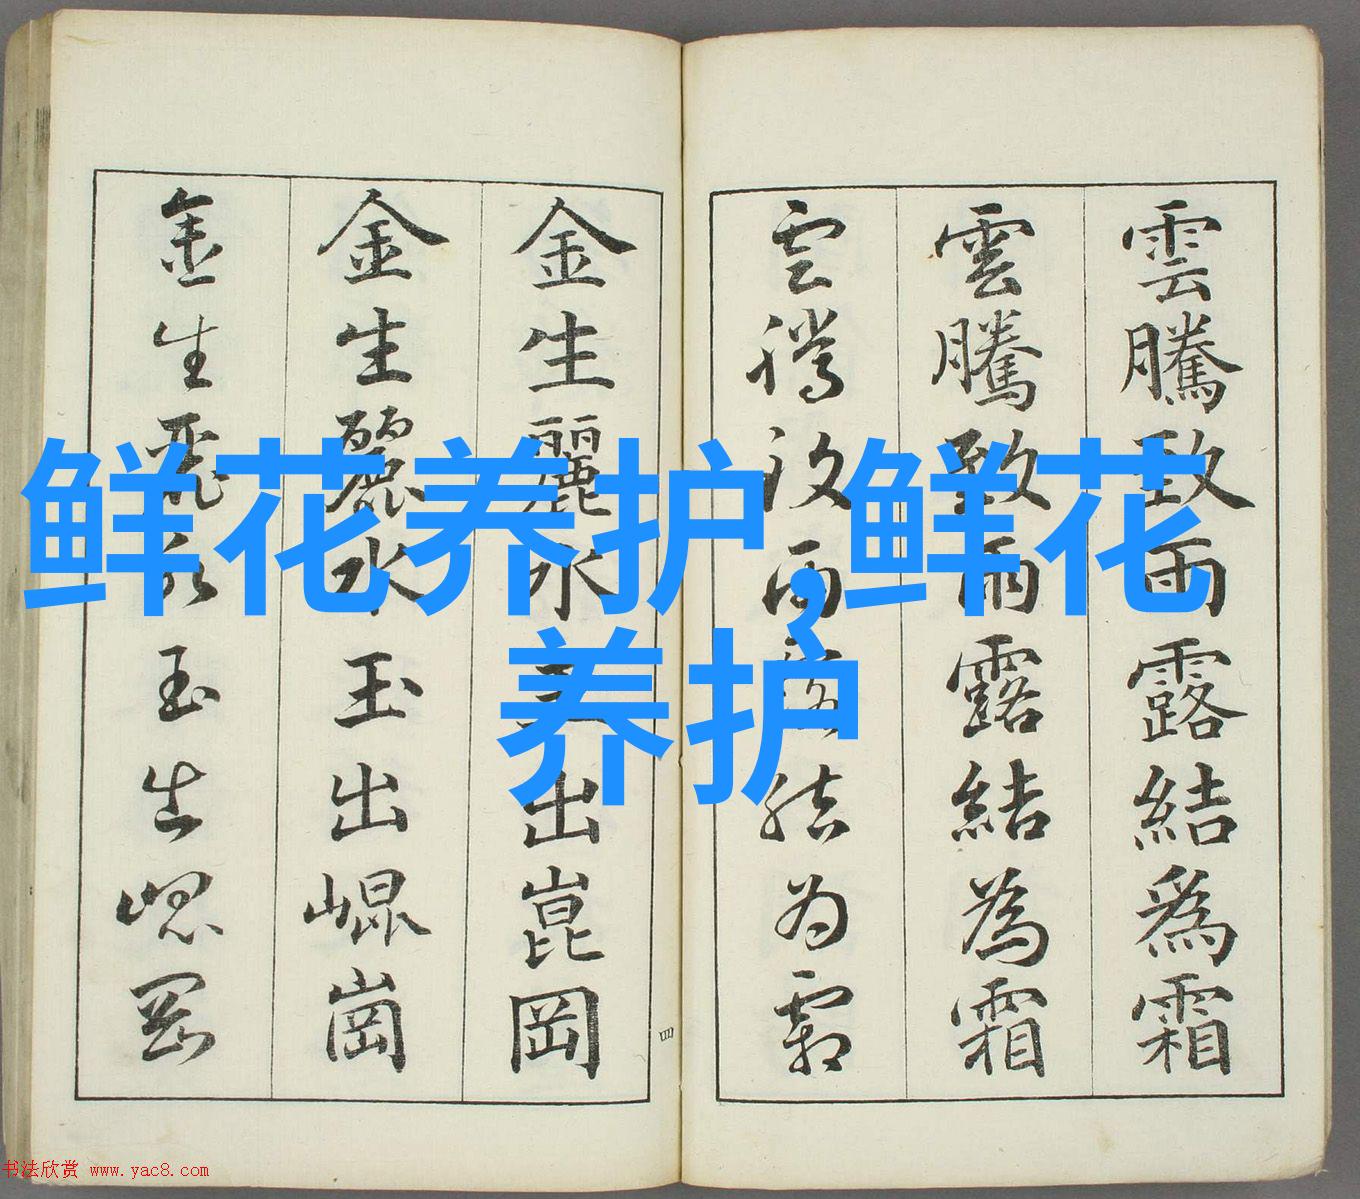 鲜花养护,鲜花
养护
雲騰致雨露結爲霜
雲騰致雨露結為霜
雲騰致雨露結为霜
四
金生麗水玉出崑岡
金生麗水玉出崐崗
金生麗水玉出崐岡
书法欣赏 www.yac8.com